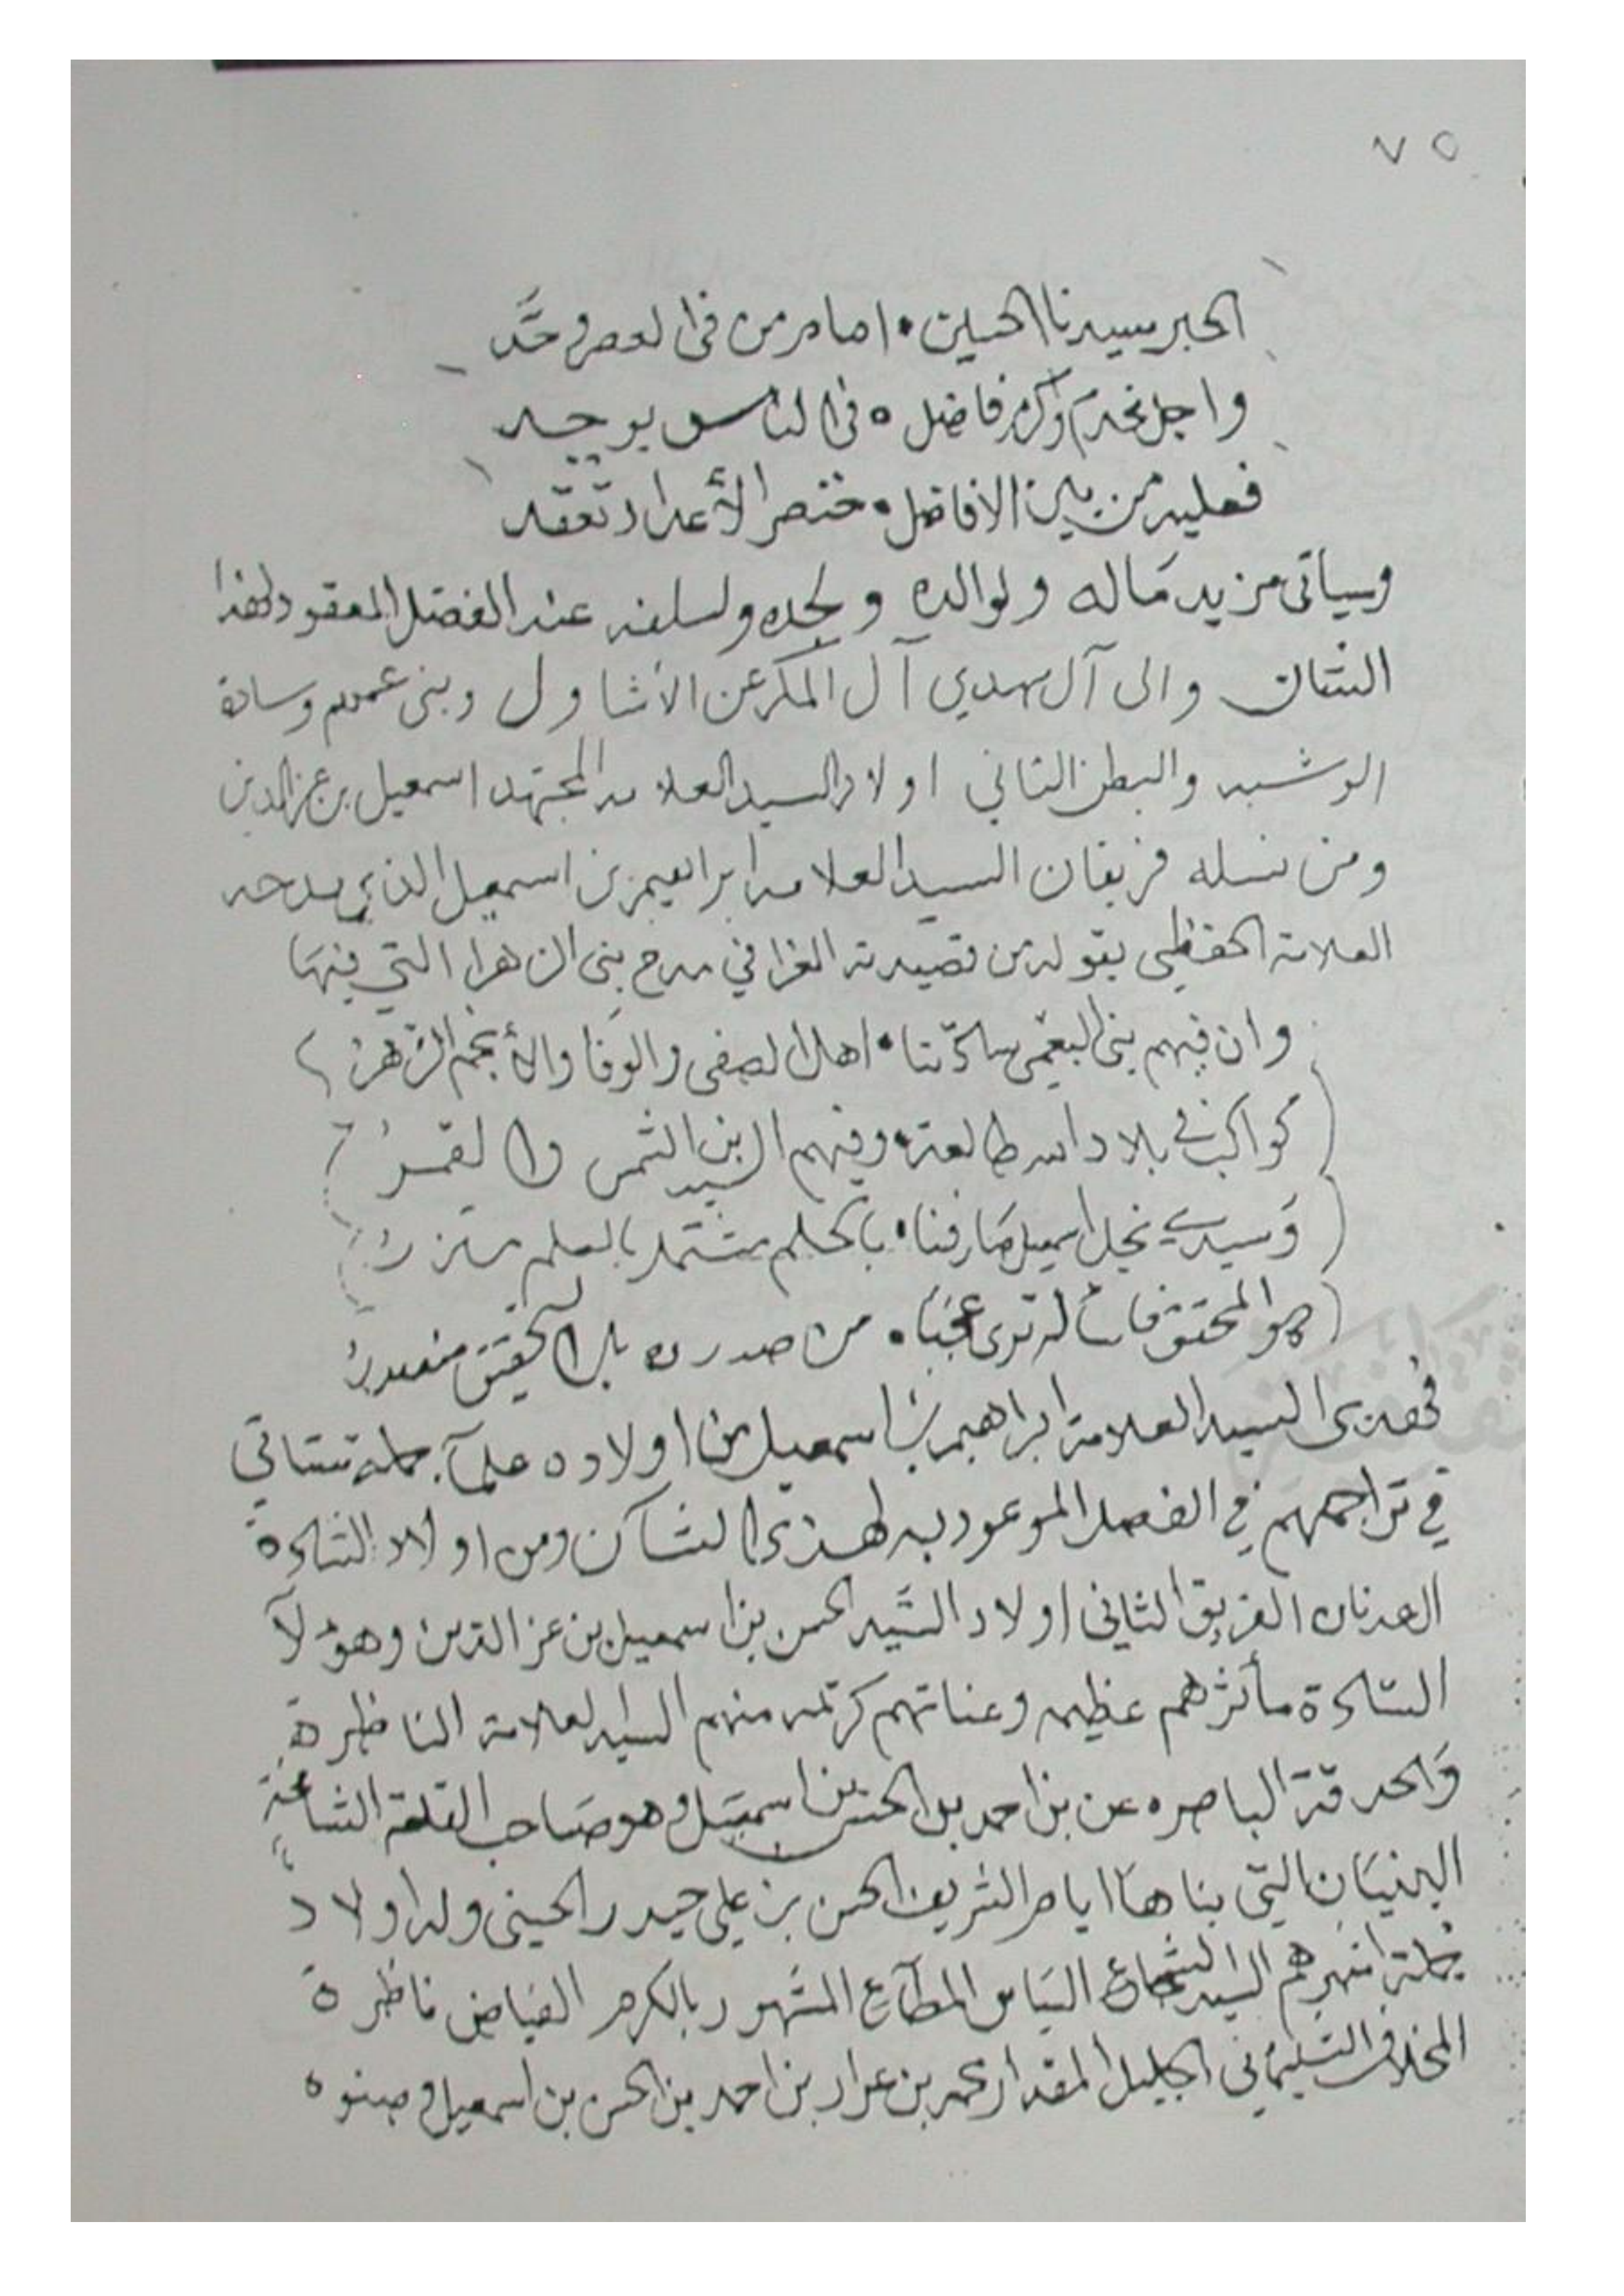 ٧٥
الحبر سيدنا الحسين • امام من في العصر وحَّد
واجل نحرير واكرم فاضل ٥ في الناس يوجد
فعليه من بين الافاضل • خنصر الأعداد تعقد
وسياتى مزيد مَاله ولوالده ولجده ولسلفه عند الفصل المعقود لهذا
الشان والى آل مهدي آل المكرعن الاشاول وبنى عمهم وسادة
الرشبه والبطن الثاني اولاد السيد العلامه المجتهد اسمعيل بن عزالدين
ومن نسله فريقان السيد العلامه ابراهيم بن اسمعيل الذي مدحه
العلامة الحفظى بقوله من قصيدته الغرا في مدح بنى الزهرا التي فيهَا
وان فيهم بنى النعمى سادتنا • اهل الصفى والوفا والأنجم الزهرُ
كواكب في بلاد الله طالعة • وفيهم السيد بن الشمس والقمرُ
وَسيدي نجل اسمعيل عَارفنا • بالحلم مشتمل بالعلم متزرُ
هو المحقق فاسأله ترى عجبَا • من صدره بل التحقيق منهمرُ
فهذى السيد العلامة ابراهيم بن اسمعيل من اولاده علمآء جملة ستاتي
في تراجمهم في الفصل الموعود به لهذى الشآن ومن اولاد السَّادة
العدنان الفريق الثانى اولاد السَّيد الحسن بن اسمعيل بن عز الدين وهؤلآ
السَّادة مأثرهم عظيمه وعناتهم كريمه منهم السيد العلامة الناظرة
وَالحدقة الباصره عن بن احمد بن الحسن بن اسمعيل وهو صَاحب القلعة الشامخة
البنيَان التي بناهَا ايام الشريف الحسن بن علي حيدر الحسنى وله اولاد
جملة اشهرهم السيد الشجاع السَياس المطآع المشهور بالكرم الفياض ناظرة
المخلاف السُليمَانى الجليل المقدار محمد بن عرار بن احمد بن الحسن بن اسمعيل وصنوه